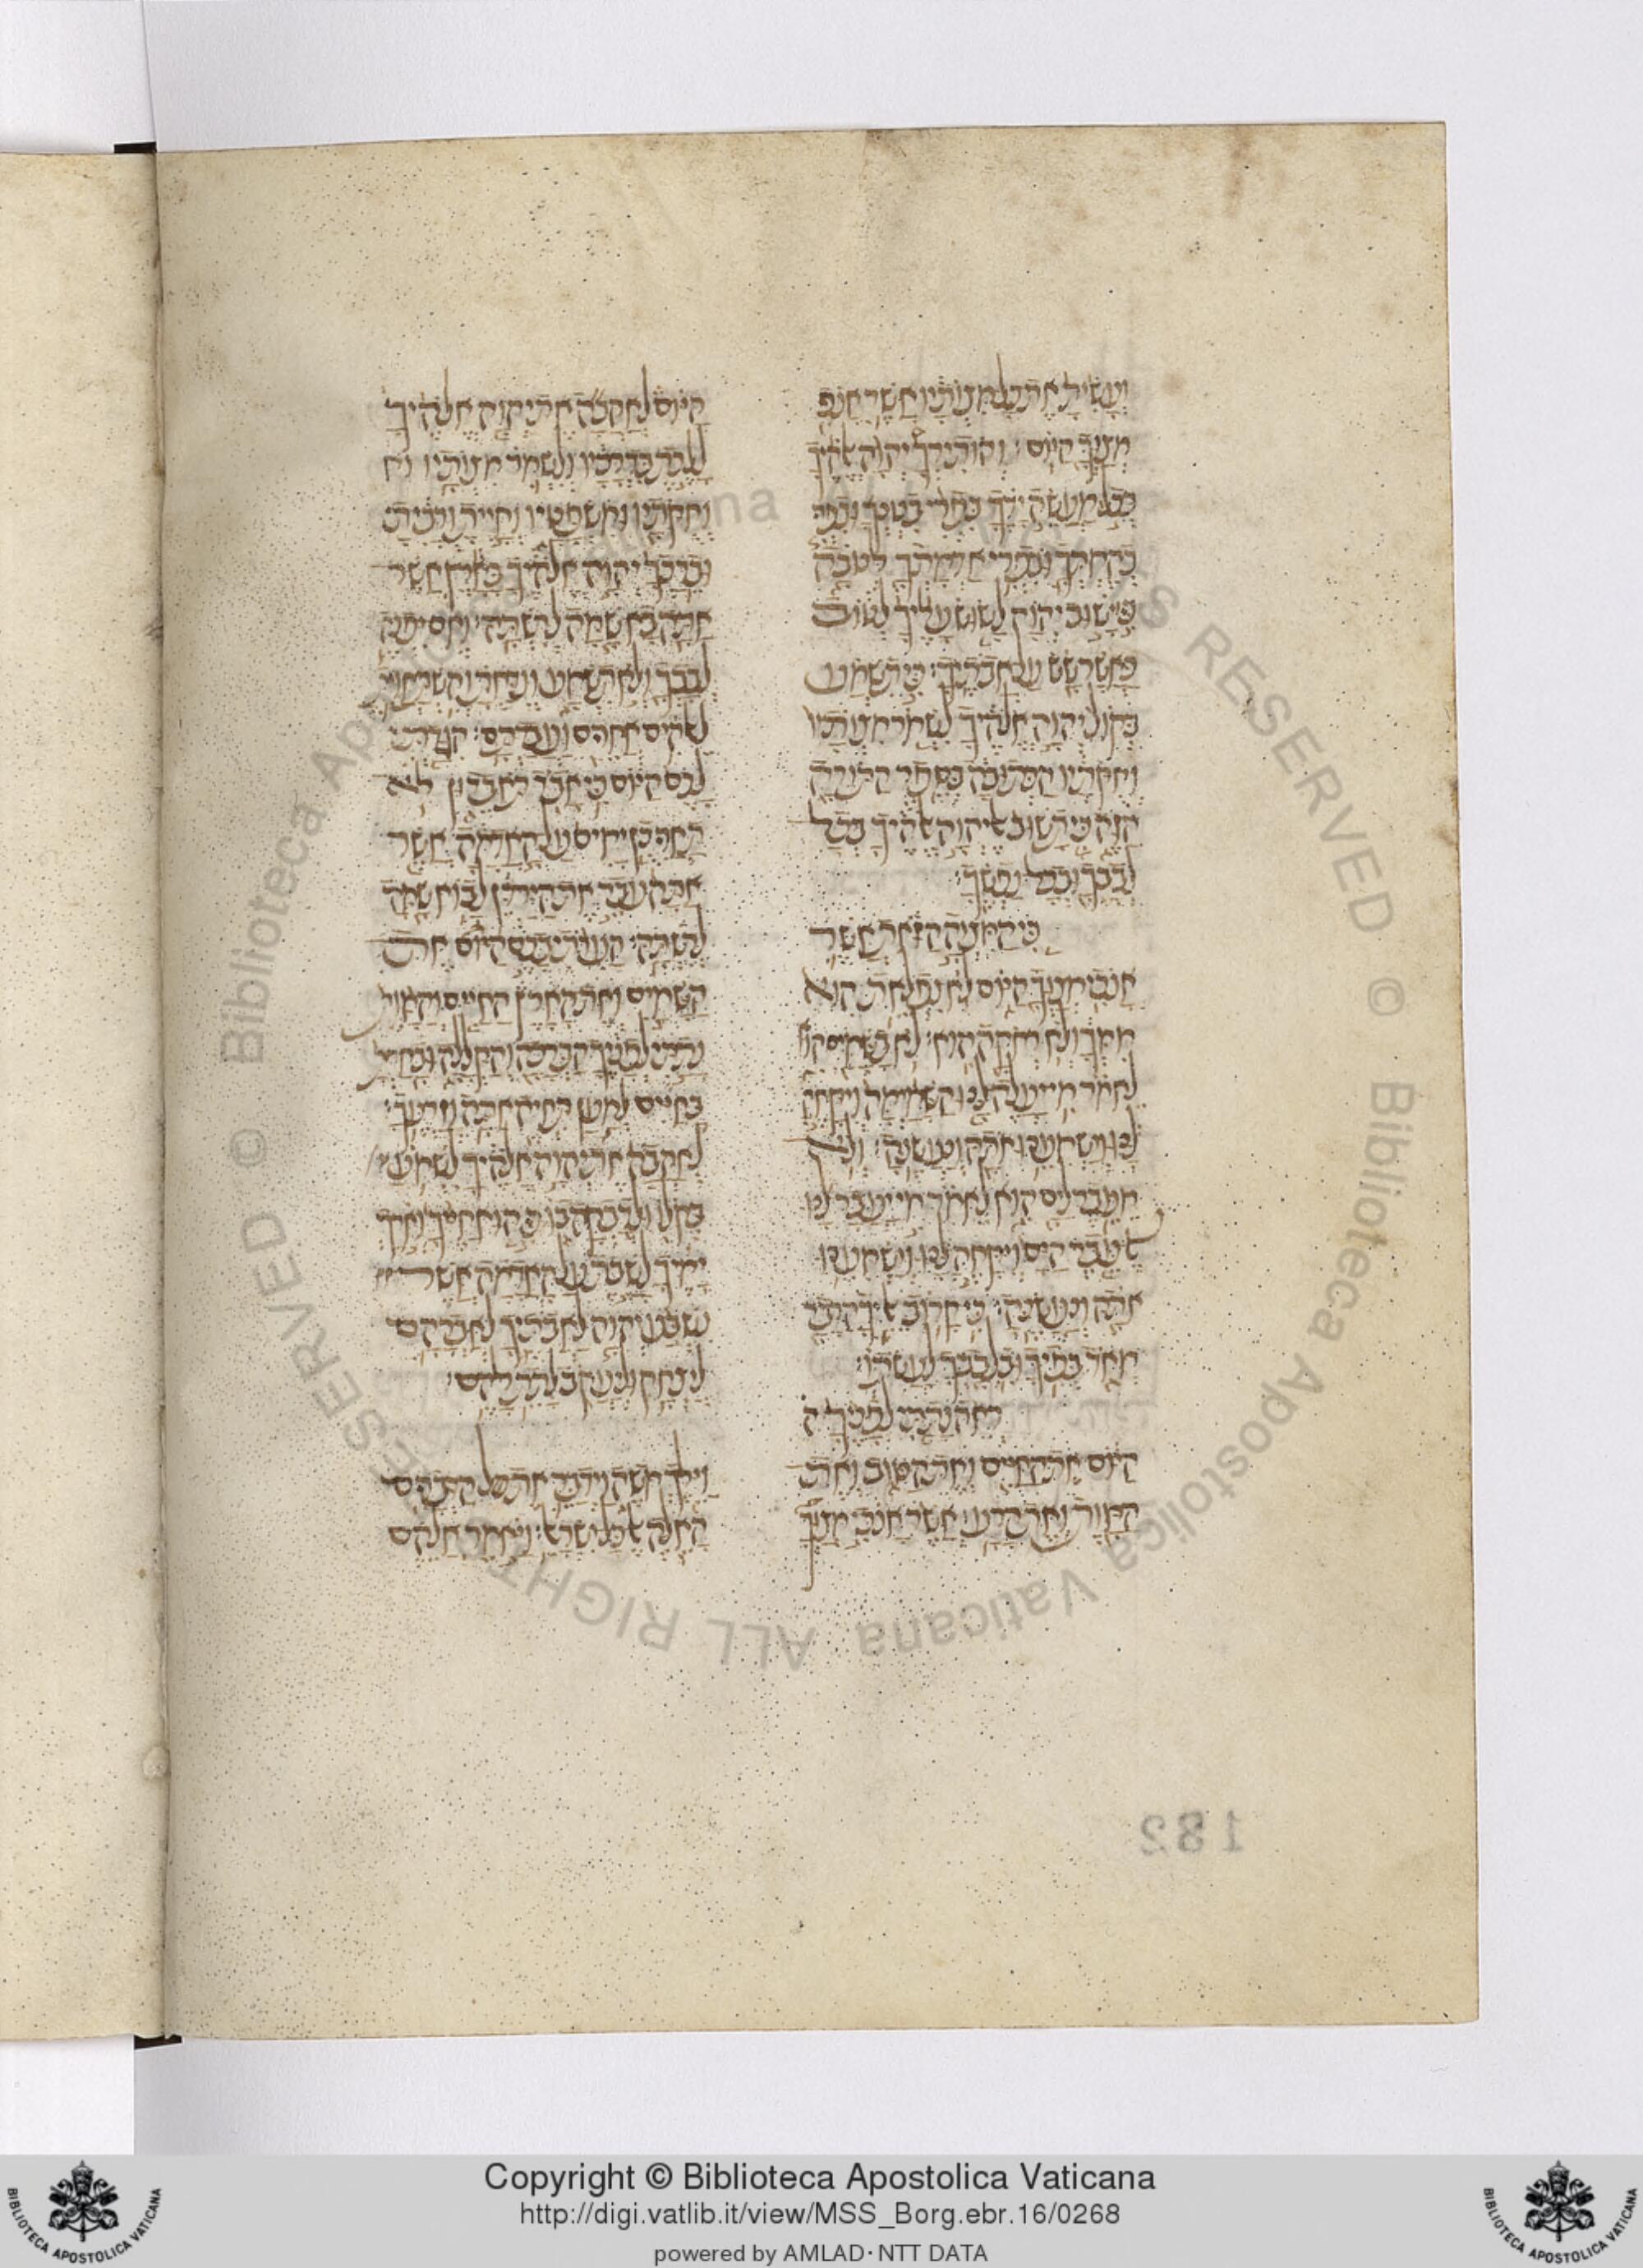 ועשית את כל מצותיו אשר אנכ
מצוך היום : והותירך יהוה אלהיך
בכל מעשה ידך בפרי בטנך ובפרי
בהמתך ובפרי אדמתך לטובה
כי ישוב יהוה לשוש עליך לטוב
כאשר שש על אבתיך : כי תשמע
בקול יהוה אלהיך לשמר מצותיו
וחקתיו הכתובה בספר התורה
הזה כי תשוב אל יהוה אלהיך בכל
לבבך ובכל נפשך :
כי המצוה הזאת אשר
אנכי מצוך היום לא נפלאת הוא
ממך ולא רחקה הוא : לא בשמים הוא
לאמר מי יעלה לנו השמימה ויקחה
לנו וישמענו אתה ונעשנה : ולא
מעבר לים הוא לאמר מי יעבר לנו
אל עבר הים ויקחה לנו וישמענו
אתה ונעשנה : כי קרוב אליך הדבר
מאד בפיך ובלבבך לעשתו :
ראה נתתי לפניך ה
היום את החיים ואת הטוב ואת
המות ואת הרע : אשר אנכי מצוך
היום לאהבה את יהוה אלהיך
ללכת בדרכיו ולשמר מצותיו וח
וחקתיו ומשפטיו וחיית ורבית
וברכך יהוה אלהיך בארץ אשר
אתה בא שמה לרשתה : ואם יפנה
לבבך ולא תשמע ונדחת והשתחוית
לאלהים אחרים ועבדתם : הגדתי
לכם היום כי אבד תאבדון לא
תאריכן ימים על האדמה אשר
אתה עבר את הירדן לבוא שמה
לרשתה : העידתי בכם היום את
השמים ואת הארץ החיים והמות
נתתי לפניך הברכה והקללה ובחרת
בחיים למען תחיה אתה וזרעך :
לאהבה את יהוה אלהיך לשמע
בקלו ולדבקה בו כי הוא חייך וארך
ימיך לשבת על האדמה אשר
נשבע יהוה לאבתיך לאברהם
ליצחק וליעקב לתת להם :
וילך משה וידבר את כל הדברים
האלה אל כל ישראל : ויאמר אלהם
182
© Biblioteca Apostolica Vaticana ALL RIGHTS RESERVED
© Biblioteca Apostolica Vaticana ALL RIGHTS RESERVED
Copyright © Biblioteca Apostolica Vaticana
http://digi.vatlib.it/view/MSS_Borg.ebr.16/0268
powered by AMLAD·NTT DATA
BIBLIOTECA APOSTOLICA VATICANA
BIBLIOTECA APOSTOLICA VATICANA